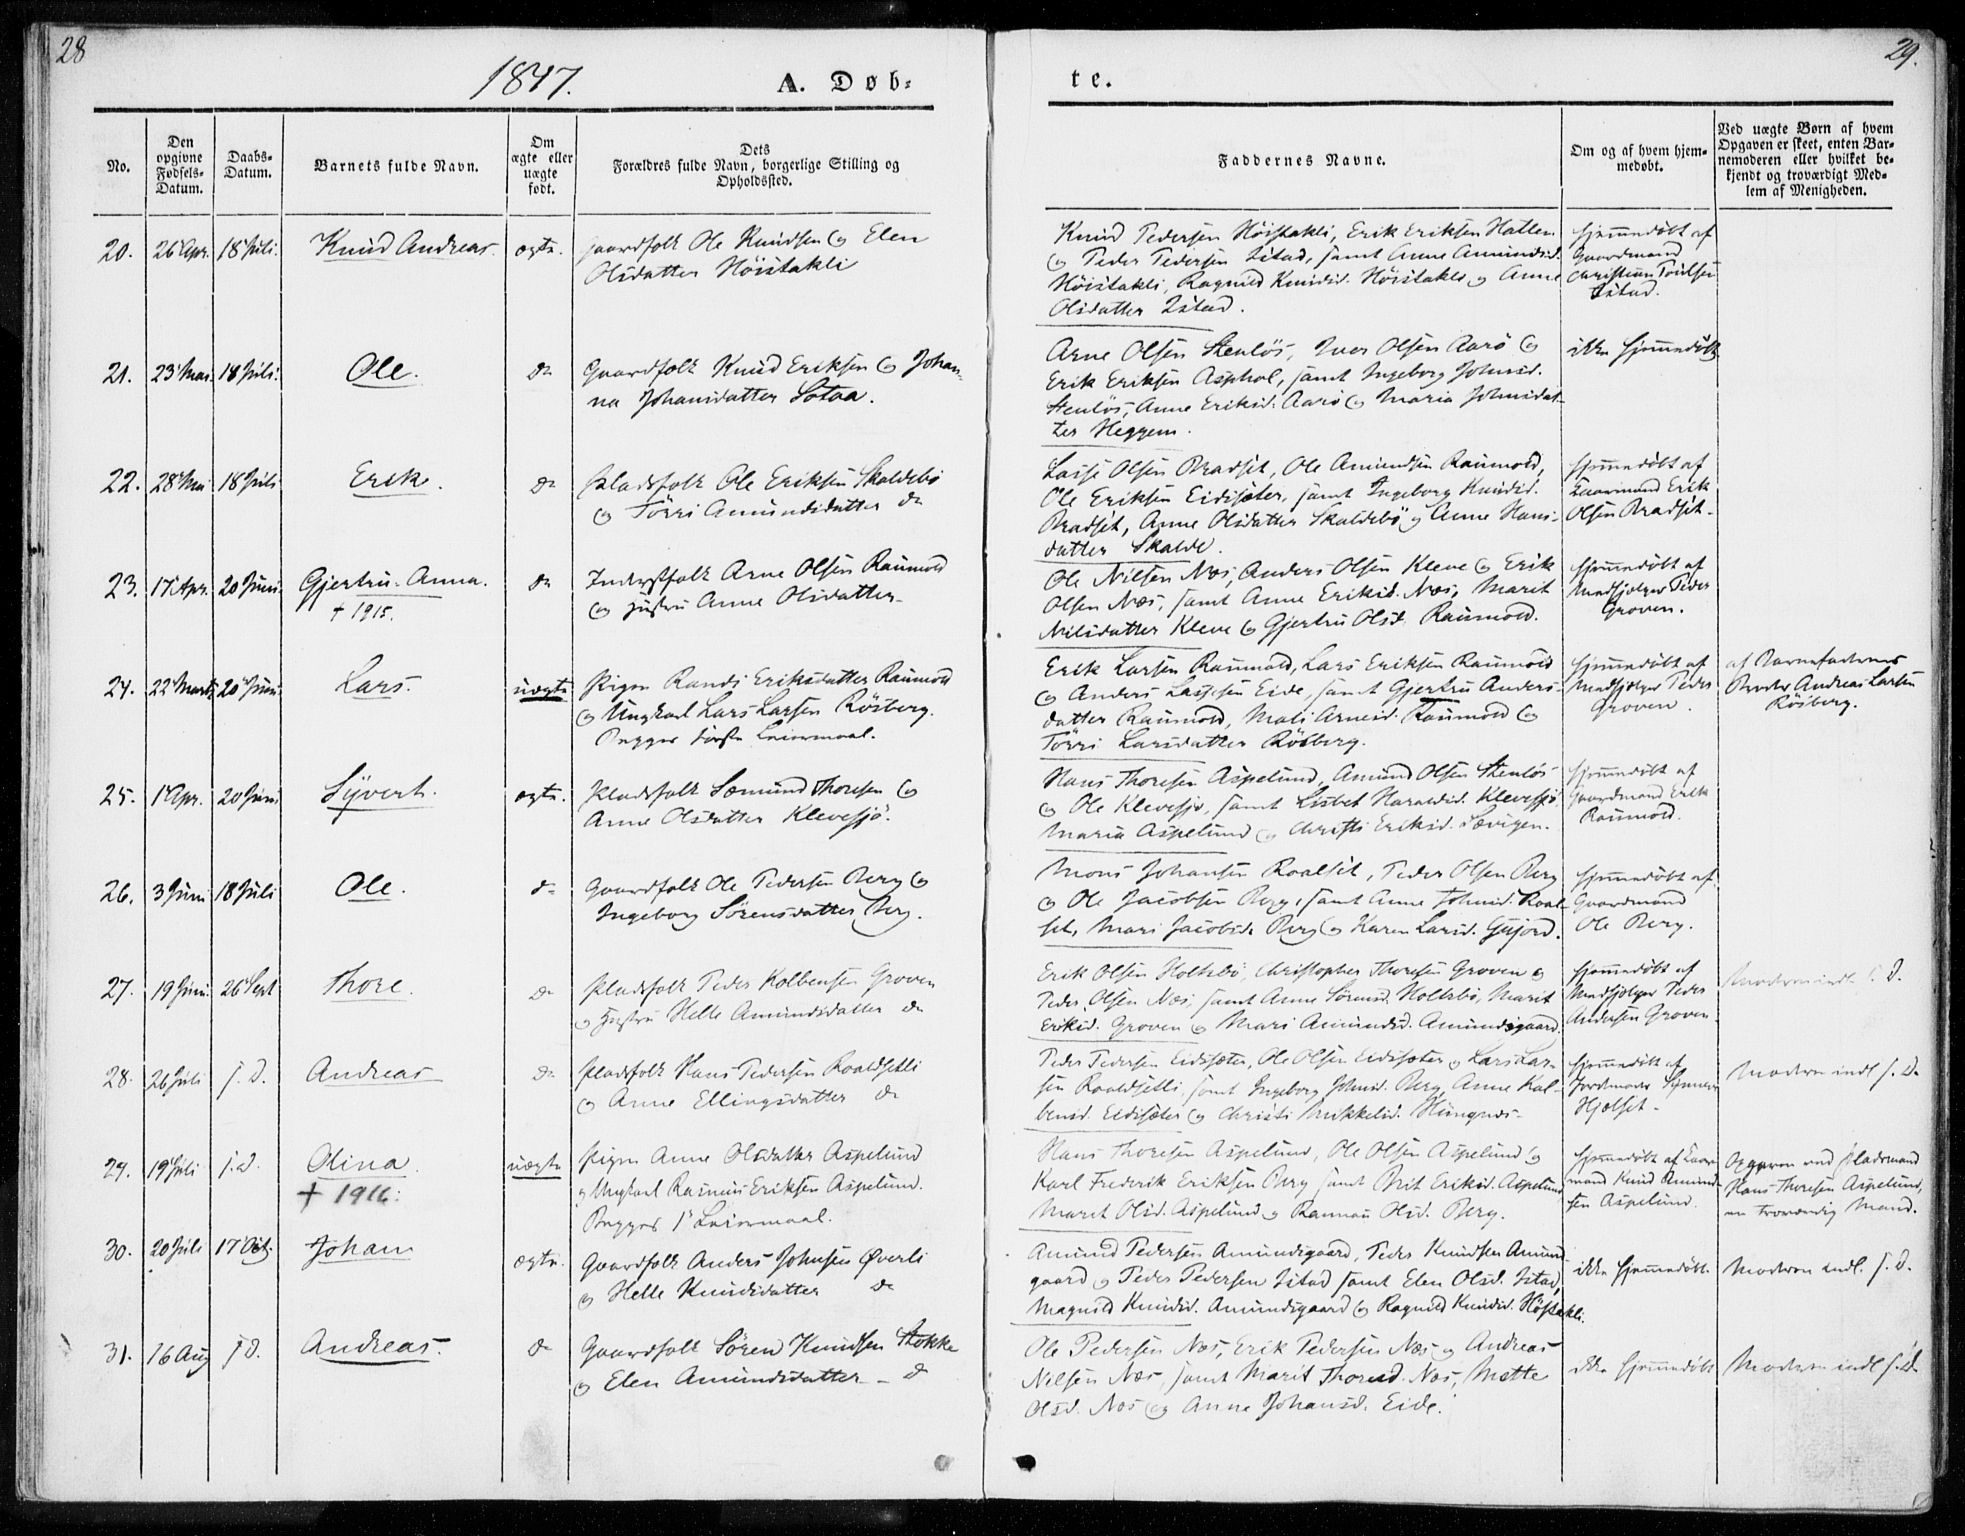 28
1847.
A. Døb-
te.
29.
No.
Den
opgivne
Fødsels-
Datum.
Daabs-
Datum.
Barnets fulde Navn.
Om
ægte eller
uægte
født.
Dets
Forældres fulde Navn, borgerlige Stilling og
Opholdssted.
Faddernes Navne.
Om og af hvem hjem-
medøbt.
Ved uægte Børn af hvem
Opgaven er skeet, enten Bar-
nemoderen eller hvilket be-
kjendt og troværdigt Med-
lem af Menigheden.
20. 26 Apr. 18 Juli. Knud Andreas. ægte. Gaardfolk Ole Knudsen og Elen
Olsdatter Höistakli
Knud Pedersen Höistakli, Erik Eriksen Hatlen
og Peder Pedersen Istad, samt Anne Amundsd.
Höistakli, Ragnild Knudsd. Höistakli og Anne
Olsdatter Istad.
hjemmedøbt af
Gaardmand
Christian
Istad.
21. 23 Mai. 18 Juli. Ole. do Gaardfolk Knud Eriksen og Johan-
na Johansdatter Sotaa.
Arne Olsen Stenlös, Iver Olsen Aarö og
Erik Eriksen Asphol, samt Ingeborg Johnsd.
Stenlös, Anne Eriksd. Aarö og Maria Johnsdat-
ter Heggem.
ikke hjemmedøbt
22. 28 Mai 18 Juli Erik. do Pladsfolk Ole Eriksen Skaldebö
og Törri Amundsdatter do
Lasse Olsen Bradset, Ole Amundsen Raumold,
Ole Eriksen Eidsæter, samt Ingeborg Knudsd.
Bradset, Anne Olsdatter Skaldebö og Anne Hans-
datter Skalde.
hjemmedøbt af
Erik
Olsen Bradset.
23. 17 Apr. 20 Juni. Gjertru Anna. do Inderstfolk Arne Olsen Raumold
og Hustru Anne Olsdatter
+ 1915.
Ole Nilsen Næs, Anders Olsen Kleve og Erik
Olsen Næs, samt Anne Eriksd. Næs, Marit
Nilsdatter Kleve og Gjertru Olsd. Raumold.
hjemmedøbt af
Medhjelper Peder
Groven.
24. 22 Marts 20 Juni Lars. uægte Pigen Randi Eriksdatter Raumold
og Ungkarl Lars Larsen Rösberg.
Begges første Leiermaal.
Erik Larsen Raumold, Lars Eriksen Raumold
og Anders Lassesen Eide, samt Gjertru Anders-
datter Raumold, Mali Arnesd. Raumold og
Törri Larsdatter Rösberg.
hjemmedøbt af
Medhjelper Peder
Groven.
af Barnefaderens
Broder Andreas Larsen
Rösberg.
25. 1 Apr. 20 Juni Syvert. ægte. Pladsfolk Sæmund Thoresen og
Anne Olsdatter Klevesjö.
Hans Thoresen Aspelund, Amund Olsen Stenlös
og Ole Klevesjö, samt Lisbet Haraldsd. Klevesjö,
Maria Aspelund og Christi Eriksd. Sævigen.
hjemmedøbt af
Gaardmand Erik
Raumold.
26. 3 Juni 18 Juli Ole. do Gaardfolk Ole Pedersen Berg og
Ingeborg Sörensdatter Berg.
Mons Johansen Roalset, Peder Olsen Berg
og Ole Jacobsen Berg, samt Anne Johnsd. Roal-
set, Mari Jacobsd. Berg og Karen Larsd. Gujord.
hjemmedøbt af
Gaardmand
Ole Berg.
27. 19 Juni. 26 Sept Thore. do Pladsfolk Peder Kolbensen Groven
og Hustru Helle Amundsdatter do
Erik Olsen Holtebö, Christopher Thoresen Groven og
Peder Olsen Næs, samt Anne Sörensd. Holtebö, Marit
Eriksd. Groven og Mari Amundsd. Amundsgaard.
hjemmedøbt af
Medhjelper Peder
Andersen Groven.
Moderen indl. s. D.
28. 26 Juli s. D. Andreas do Pladsfolk Hans Pedersen Roaldsetli
og Anne Ellingsdatter do
Peder Pedersen Eidsæter, Ole Olsen Eidsæter og Lars Lar-
sen Roaldsetli, samt Ingeborg Johnsd. Berg, Anne Kol-
bensd. Eidsæter og Christi Mikkelsd. Hungnes.
hjemmedøbt af
Jordmoder
Hjelset.
Moderen indl s. D.
29. 19 Juli s. d. Olina. uægte Pigen Anne Olsdatter Aspelund
og Ungkarl Rasmus Eriksen Aspelund.
Begges 1ste Leiermaal.
+ 1916:
Hans Thoresen Aspelund, Ole Olsen Aspelund og
Karl Frederik Eriksen Berg samt Brit Eriksd. Aspelund
Marit Olsd. Aspelund og Rannau Olsd. Berg.
hjemmedøbt af
Knud Amund-
sen Aspelund.
Opgaven ved Pladsmand
Hans Thoresen Aspelund,
en troværdig Mand.
30. 20 Juli 17 Oct. Johan ægte. Gaardfolk Anders Johnsen Øverli
og Helle Knudsdatter do
Amund Pedersen Amundsgaard, Peder Knudsen Amund-
gaard og Peder Pedersen Istad samt Elen Olsd. Istad,
Magnild Knudsd. Amundsgaard og Ragnild Knudsd. Höstakli.
ikke hjemmedøbt.
Moderen indl. s. D.
31. 16 Aug s D. Andreas. do Gaardfolk Sören Knudsen Stokke
og Elen Amundsdatter - do
Ole Pedersen Næs, Erik Pedersen Næs og Andreas
Nilsen Næs, samt Marit Thoresd. Næs, Mette
Olsd. Næs og Anne Johansd. Eide.
ikke hjemmedøbt
Moderen indl s. D.